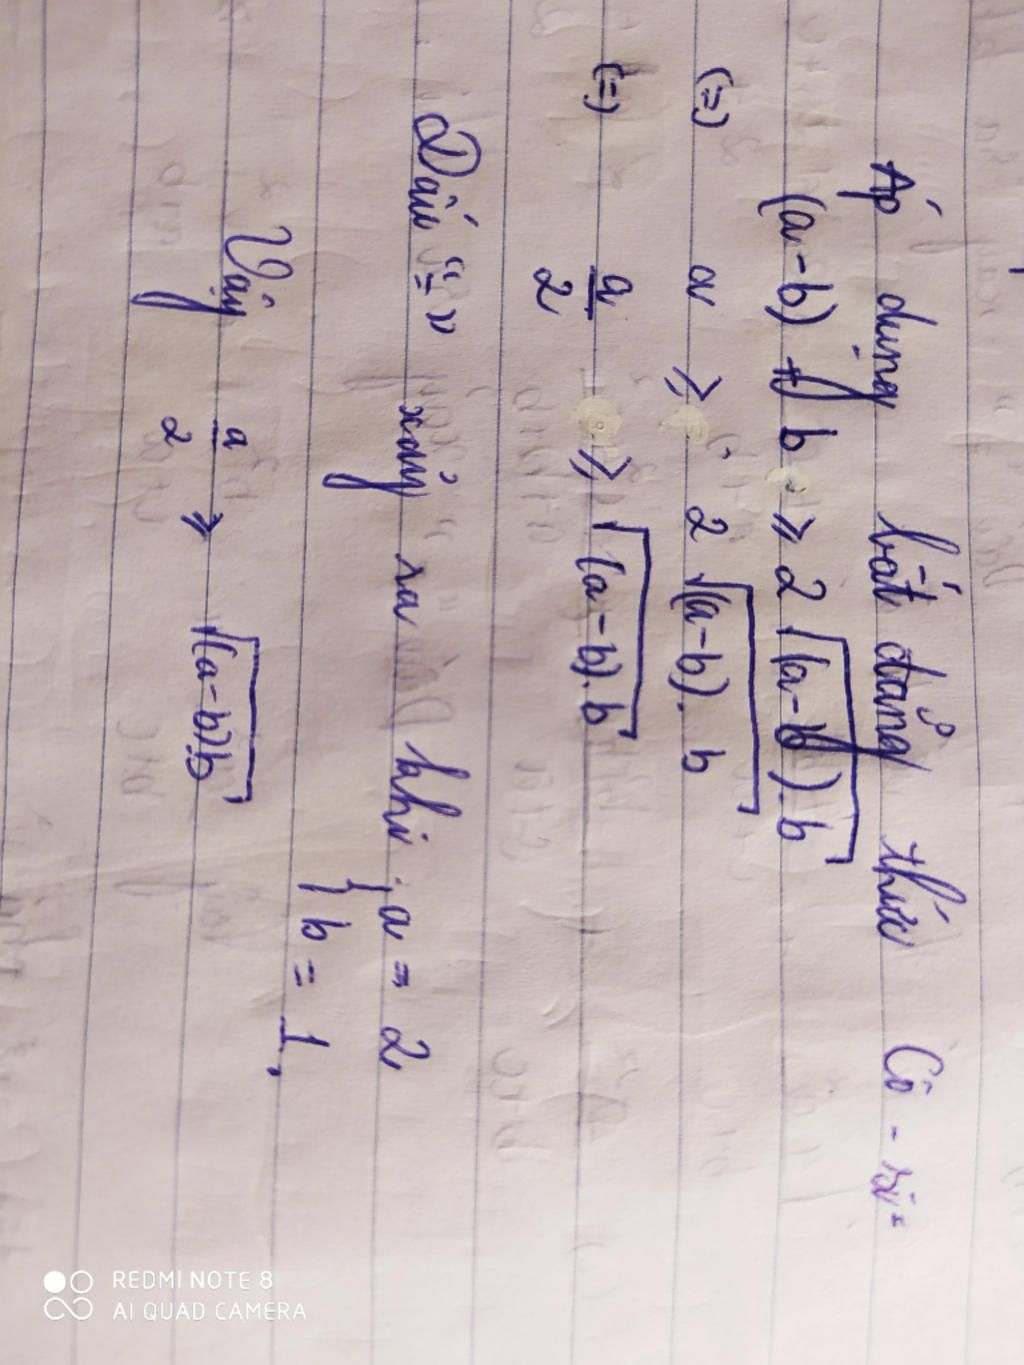 Áp dụng bất đẳng thức Cô - si:
(a-b) + b ≥ 2√(a-b).b
(=) a ≥ 2√(a-b).b
(=) a/2 ≥ √(a-b).b
Dấu "=" xảy ra khi {a = 2
b = 1.
Vậy a/2 ≥ √(a-b)b
REDMI NOTE 8
AI QUAD CAMERA